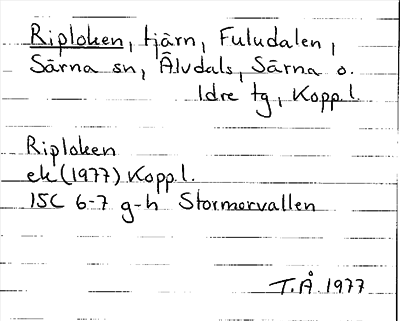 Riploken, tjärn, Fuludalen,
Särna sn, Älvdals, Särna o.
Idre tg, Koppl.
Riploken
ek (1977) Koppl.
15C 6-7 g-h Stormorvallen
T.Å 1977